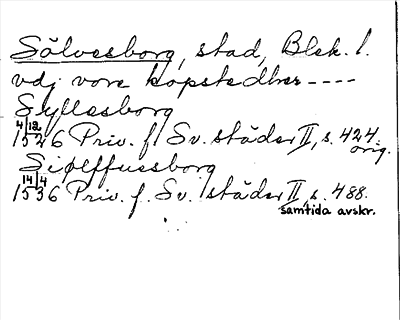 Sölvesborg, stad, Blek. l.
vdj vore köpstedher ----
Syllesborg
4/12 1526 Priv. f. Sv. städer II, s. 424.
orig.
Siølffuessborg
14/4 1536 Priv. f. Sv. städer II, s. 488.
samtida avskr.